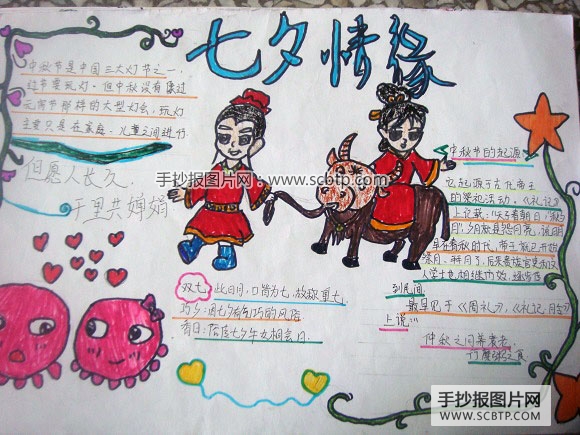 七夕情缘
中秋节是中国三大灯节之一,
过节要玩灯。但中秋没有像过
元宵节那样的大型灯会,玩灯
主要只是在家庭、儿童之间进行
但愿人长久,
千里共婵娟
手抄报图片网:www.scbtp.com
中秋节的起源
它起源于古代帝王
的祭祀活动。《礼记》
上记载:"天子春朝日,秋夕
月",夕月就是祭月亮,说明
早在春秋时代,帝王就已开始
祭月、拜月了。后来贵族官吏和文
人学士也相继仿效,逐步传
到民间
最早见于《周礼》,《礼记·月令》
上说:
仲秋之月养衰老,
行糜粥之食
双七:此日,月、日皆为七,故称重七。
巧夕:因七夕有乞巧的风俗
香日:俗传七夕牛女相会日.
手抄报图片网
WWW.SCBTP.COM